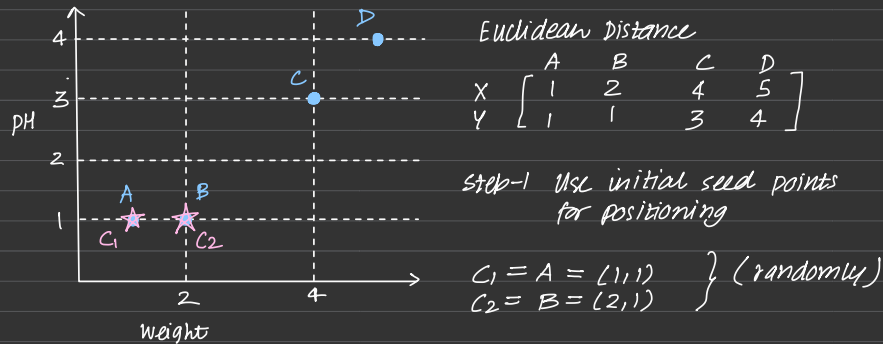 D
4
C
3
PH
2
A B
1
C1 C2
2 4
Weight
Euclidean Distance
A B C D
X [ 1 2 4 5 ]
Y 1 1 3 4
Step-1 Use initial seed points
for positioning
C1 = A = (1,1) } (randomly)
C2 = B = (2,1)